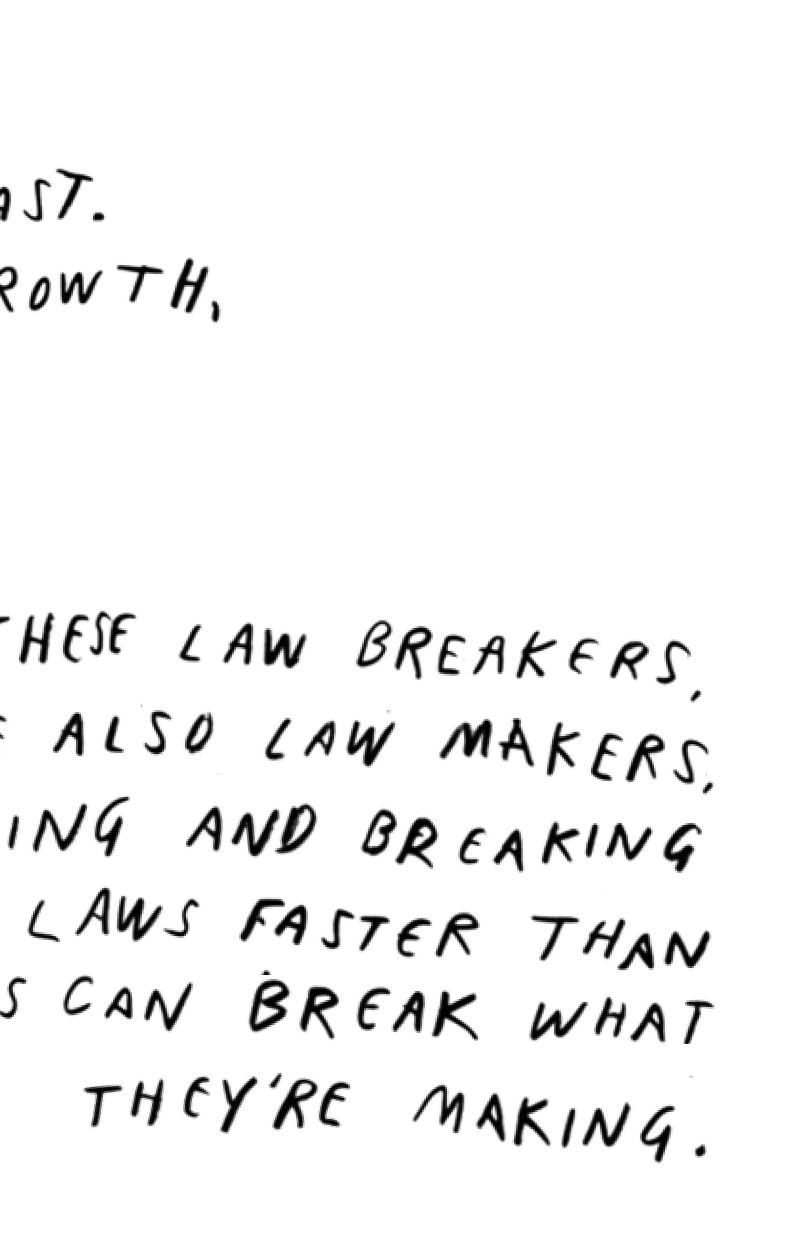 AST.
ROWTH,
THESE LAW BREAKERS,
E ALSO LAW MAKERS,
ING AND BREAKING
LAWS FASTER THAN
S CAN BREAK WHAT
THEY'RE MAKING.